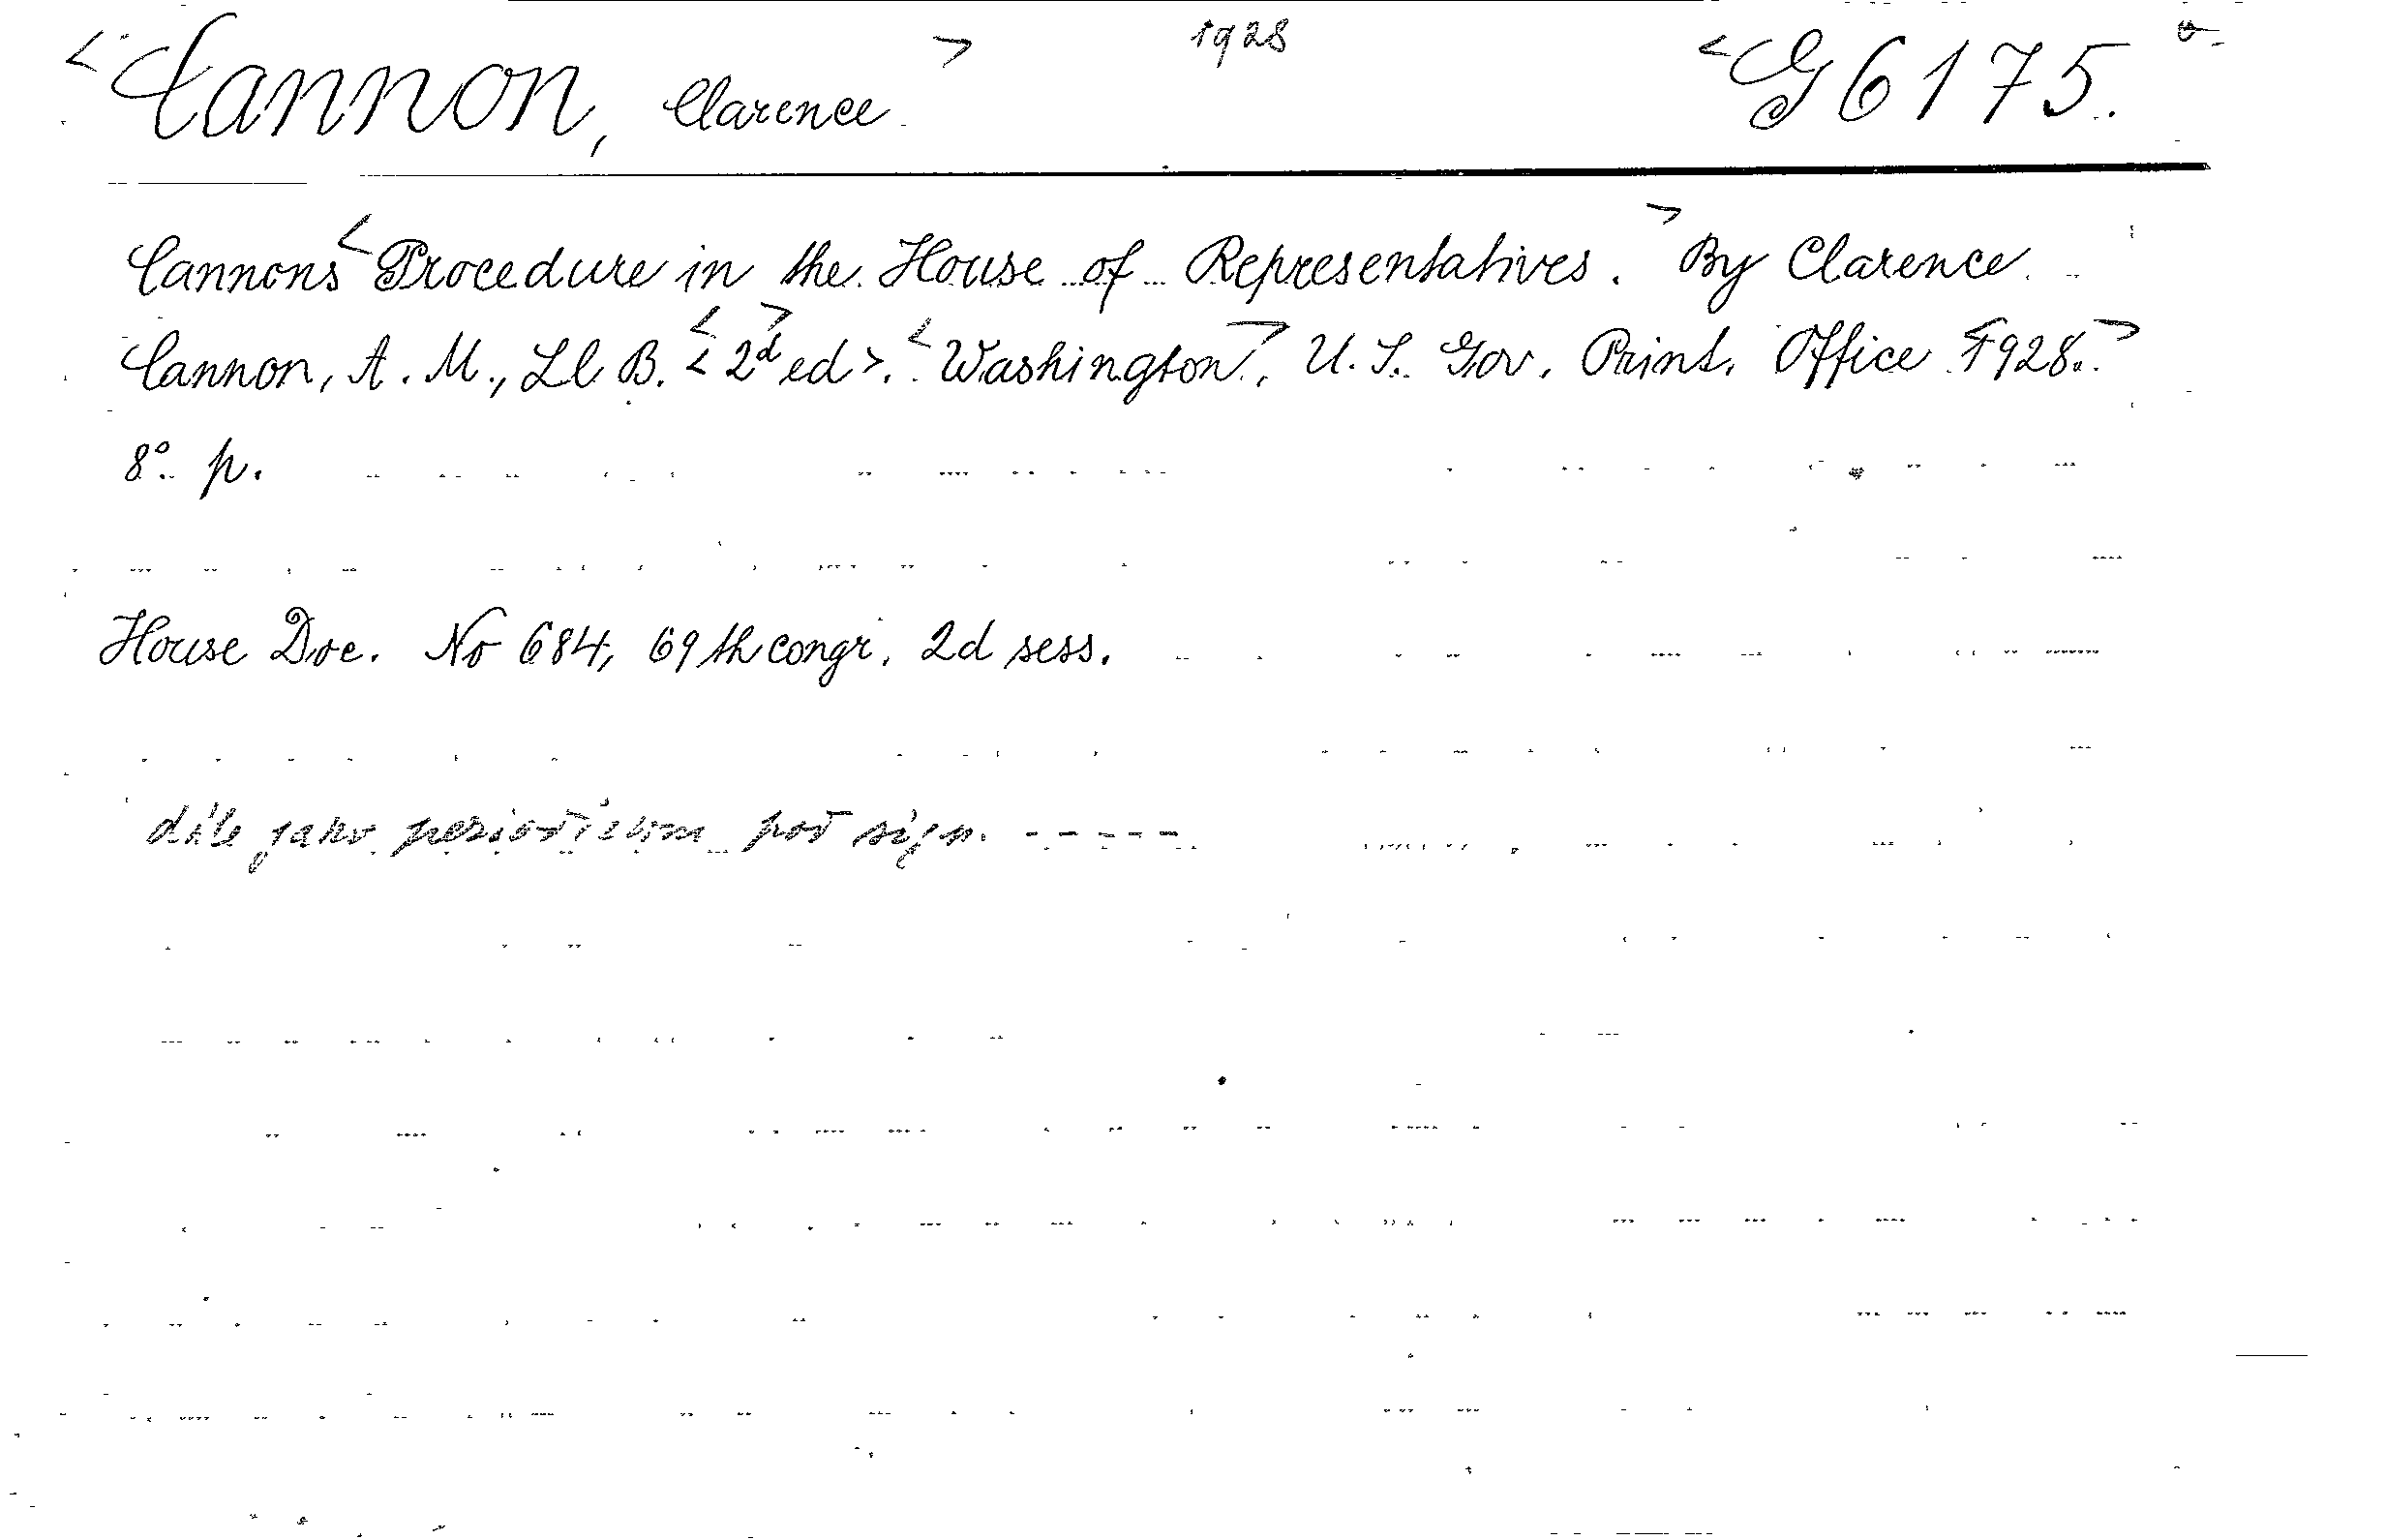 <Cannon, Clarence> 1928 <G 6175.
Cannons <Procedure in the House of Representatives.> By Clarence
Cannon, A. M., Ll. B. <<2d> ed>. <Washington>, U. S. Gov. Print. Office <1928.>
8°. p.
House Doc. No 684, 69th congr. 2d sess.
dále jako periodicum pod sign. -----